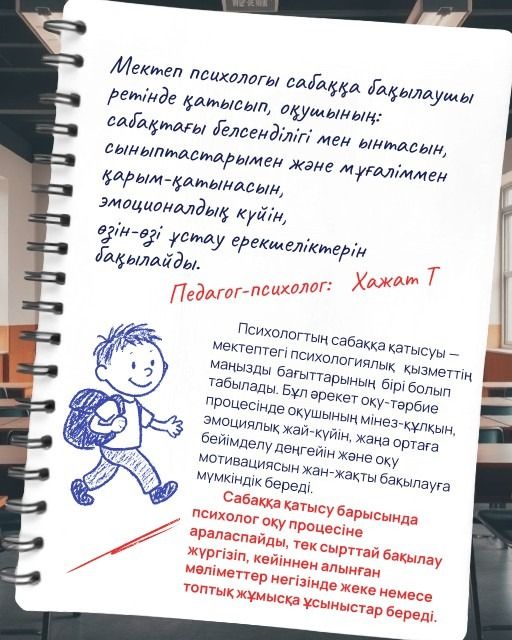 Мектеп психологы сабаққа бақылаушы
ретінде қатысып, оқушының:
сабақтағы белсенділігі мен ынтасын,
сыныптастарымен және мұғаліммен
қарым-қатынасын,
эмоционалдық күйін,
өзін-өзі ұстау ерекшеліктерін
бақылайды.
Педагог-психолог: Хажат Т
Психологтың сабаққа қатысуы –
мектептегі психологиялық қызметтің
маңызды бағыттарының бірі болып
табылады. Бұл әрекет оқу-тәрбие
процесінде оқушының мінез-құлқын,
эмоциялық жай-күйін, жаңа ортаға
бейімделу деңгейін және оқу
мотивациясын жан-жақты бақылауға
мүмкіндік береді.
Сабаққа қатысу барысында
психолог оқу процесіне
араласпайды, тек сырттай бақылау
жүргізіп, кейіннен алынған
мәліметтер негізінде жеке немесе
топтық жұмысқа ұсыныстар береді.